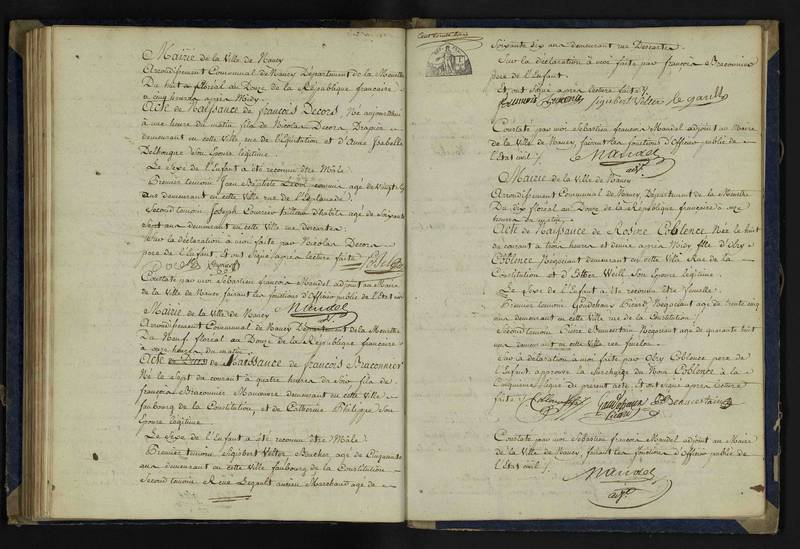 Mairie de la Ville de Nancy
Arrondissement Communal de Nancy Département de la Meurthe
Du huit floréal au Douze de la République française
a cinq heures après Midy.
Acte de Naissance de françois Decors, Né aujourdhui
à une heure du matin fils de Nicolas Decors Drapier
demeurant en cette Ville rue de l'Equitation et d'Anne Isabelle
son Epouse légitime.
Le Sexe de l'Enfant a été reconnu être Mâle.
Premier temoin Jean Baptiste agé de Vingt
ans demeurant en cette Ville rue de l'Esplanade.
Second temoin Joseph Courrier tailleur d'habits agé de Soixante
Sept ans demeurant en cette Ville rue descartes.
Sur la déclaration à moi faite par Nicolas Decors
pere de l'Enfant. Et ont Signé après lecture faite
Constaté par moi Sébastien françois Mandel adjoint au Maire
de la Ville de Nancy faisant les fonctions d'Officier public de l'Etat civil
Mandel
adj.t
Mairie de la Ville de Nancy
Arrondissement Communal de Nancy Département de la Meurthe
Du Neuf floréal au Douze de la République française
à onze heures du matin
Acte de Naissance de françois Braconnier
Né le Sept du courant à quatre heures du Soir fils de
françois Braconnier Manœuvre demeurant en cette Ville
faubourg de la Constitution, et de Catherine Philippe Son
Epouse légitime
Le Sexe de l'Enfant a été reconnu être Mâle.
Premier temoin Sigisbert Velter Boucher agé de Cinquante
ans demeurant en cette Ville faubourg de la Constitution
Second temoin René Legault ancien Marchand agé de
Cent trente trois
Soixante dix ans demeurant rue Descartes.
Sur la déclaration à moi faite par françois Braconnier
pere de l'Enfant.
Et ont Signé après lecture faite
Sigisbert Velter
Constaté par moi Sébastien françois Mandel adjoint au Maire
de la Ville de Nancy, faisant les fonctions d'Officier public de
l'Etat civil
Mandel
adj.t
Mairie de la Ville de Nancy
Arrondissement Communal de Nancy, Département de la Meurthe
Du dix floréal au Douze de la République française à onze
heures du matin.
Acte de Naissance de Rosine Coblence. Née le huit
du courant a trois heures et demie après Midy fille d'Olry
Coblence Negociant demeurant en cette Ville Rue de la
Constitution et d'Esther Weill Son Epouse légitime.
Le Sexe de l'Enfant a été reconnu être femelle.
Premier temoin Goudchaux Picard Negociant agé de trente cinq
ans demeurant en cette Ville rue de la Constitution
Second temoin Negociant agé de quarante huit
ans demeurant en cette Ville rue
Sur la déclaration a moi faite par Olry Coblence pere de
l'Enfant. approuvé la Surcharge du Nom Coblence à la
Cinquieme ligne du present acte, Et ont Signé après lecture
faite
Constaté par moi Sébastien françois Mandel adjoint au Maire
de la Ville de Nancy, faisant les fonctions d'Officier public de
l'Etat civil
Mandel
adj.t